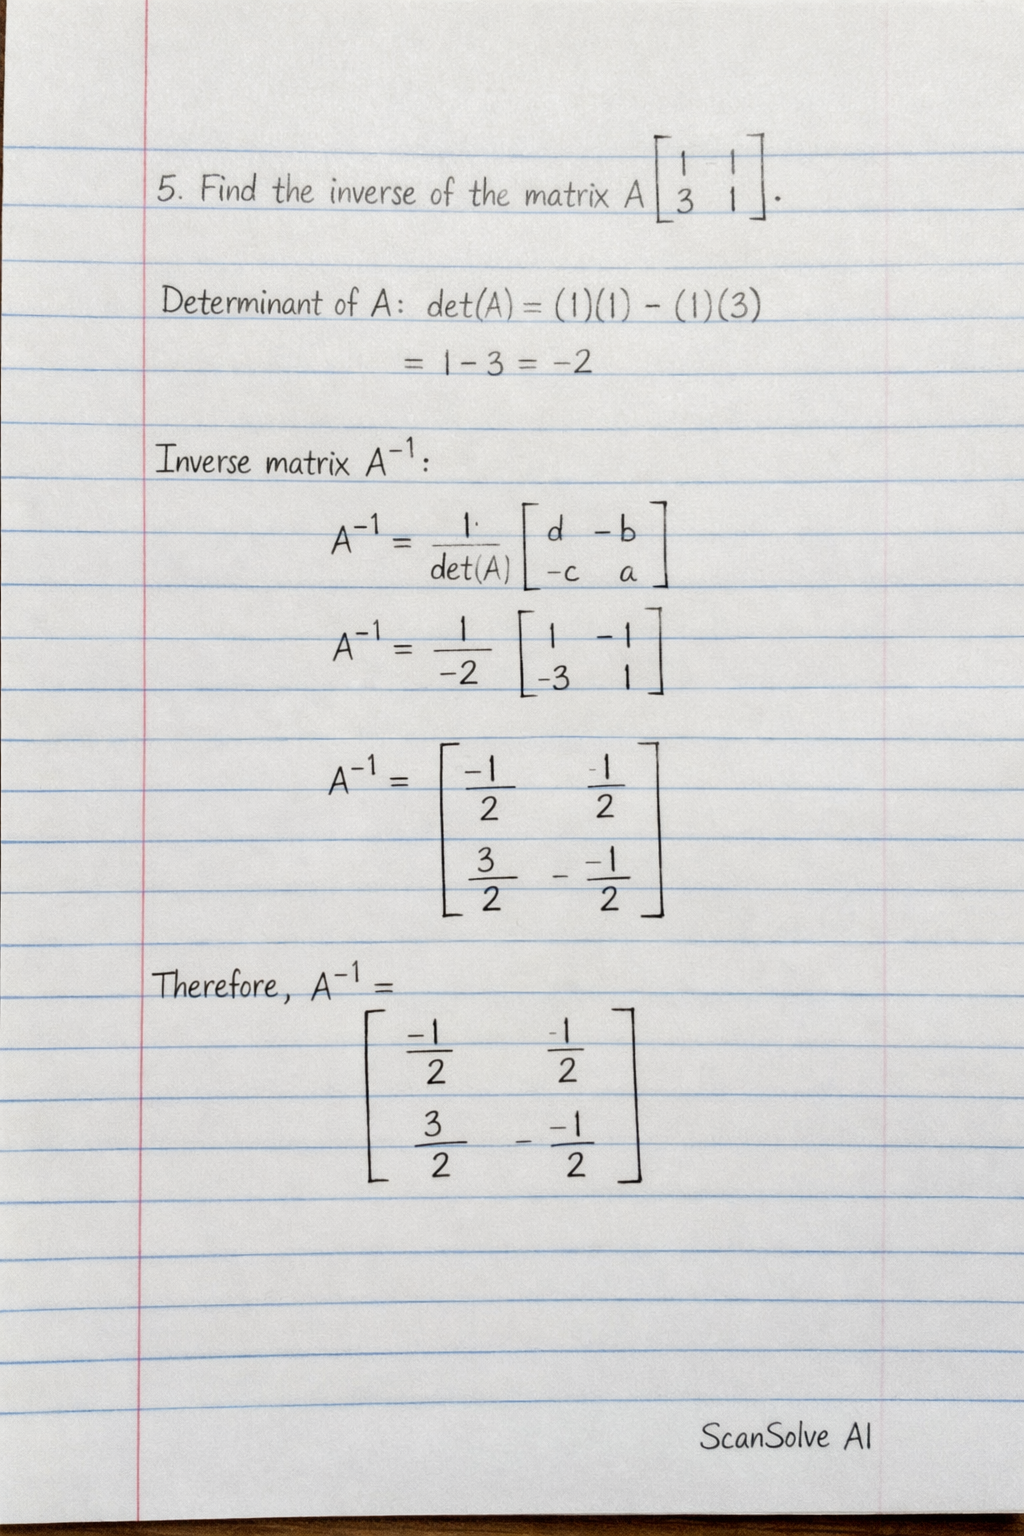 5. Find the inverse of the matrix A [ 1 1 ; 3 1 ].
Determinant of A: det(A) = (1)(1) - (1)(3)
= 1 - 3 = -2
Inverse matrix A⁻¹:
A⁻¹ = 1/det(A) [ d -b ; -c a ]
A⁻¹ = 1/-2 [ 1 -1 ; -3 1 ]
A⁻¹ = [ -1/2 -1/2 ; 3/2 - -1/2 ]
Therefore, A⁻¹ =
[ -1/2 -1/2 ; 3/2 - -1/2 ]
ScanSolve AI